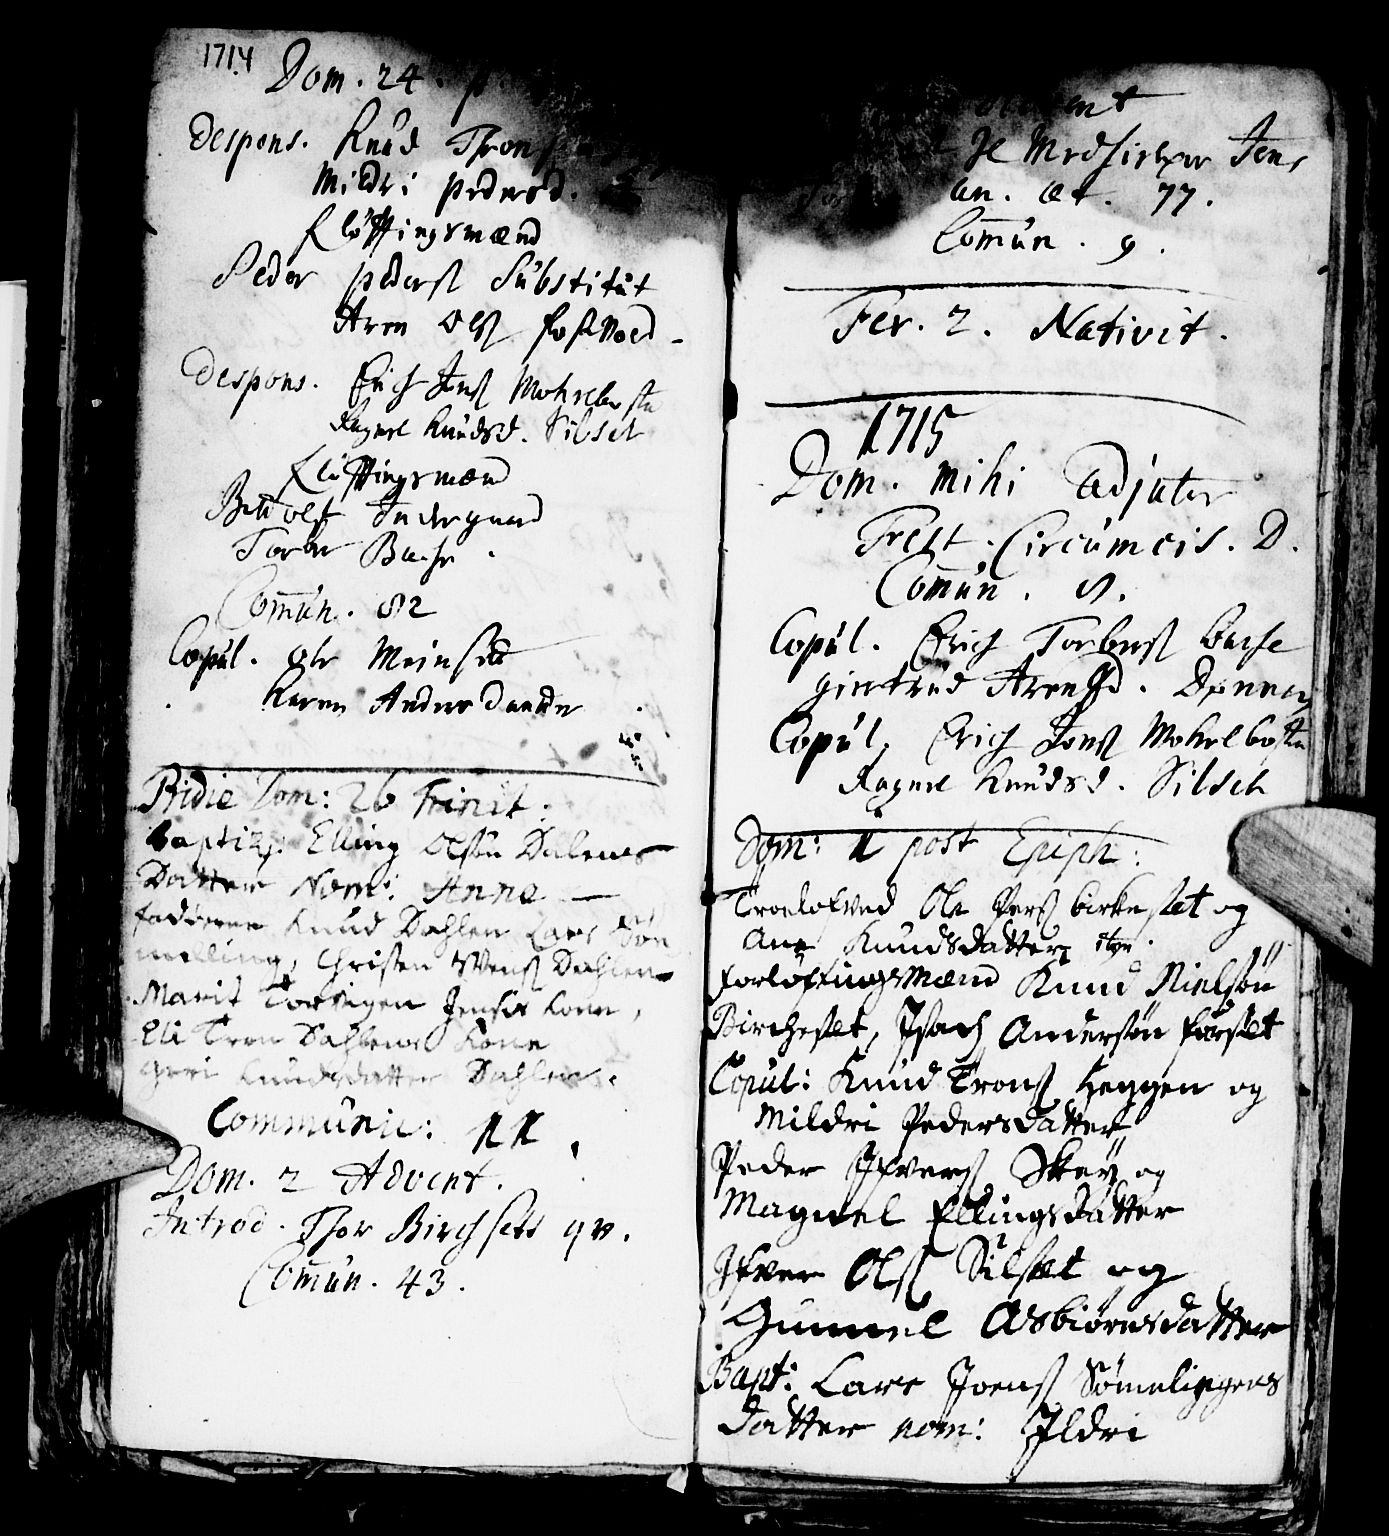 1714
Dom. 24. p
Despons. Knud Trons
Mildri Pedersd.
fløffingsmænd
Peder Pedersß Substitut
Aren Olß
Despons. Erich Jonß Mohrlbostn
Ragnel Knudsd. Silset
fløffingsmænd
Indergaard
Torber Bache.
Comūn. 82
Copul. Ole Meinset
Karen Anders daatter
Pridie Dom: 26 Trinit:
baptiz: Elling Olsøn Dalens
Datter Nom: Anne —
fadderne Knud Dahlen Lars Søm
melling, Christen Dahlen
Marit Jenses Kone,
Eli Tron Dahlens Kone
Guri Knudsdatter Dahlen.
Communic: 11.
Dom. 2 Advent.
Introd. Thor Birchsets qv.
Comūn. 43.
Advent
Jens
an. æt. 77.
Comūn. 9.
Fer. 2. Nativit.
1715
Dom. mihi Adjutor
Fest. Circumcis. D.
Comūn. 8.
Copul. Erich Torberß Bache
Giertrud Arensd.
Copul, Erich Jonß Mohrlbostn
Ragnel Knudsd. Silset
Dom: 1 post Epiph:
Troelofved Ole Perß Birkeset og
Ane Knudsdatter
forløffingsmænd Knud Nielsøn
Bircheset, Isach Andersøn
Copul: Knud Tronß Heggen og
Mildri Pedersdatter
Peder Ifversß og
Magnel Ellingsdatter
Ifver Olß Silset og
Gunnel Asbiørnsdatter
Bapt: Lars Joensß Sømelingens
datter nom: Ildri